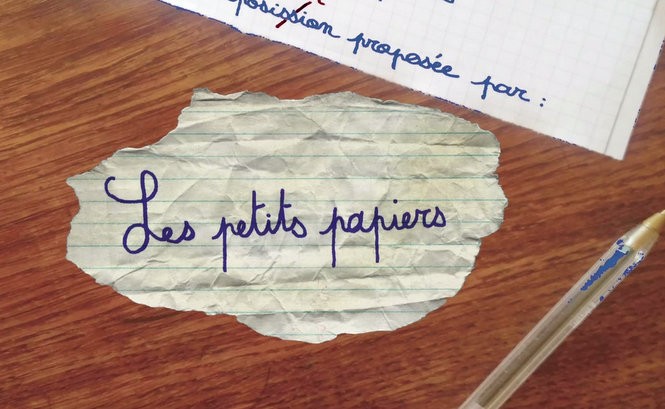 posission proposée par :
Les petits papiers